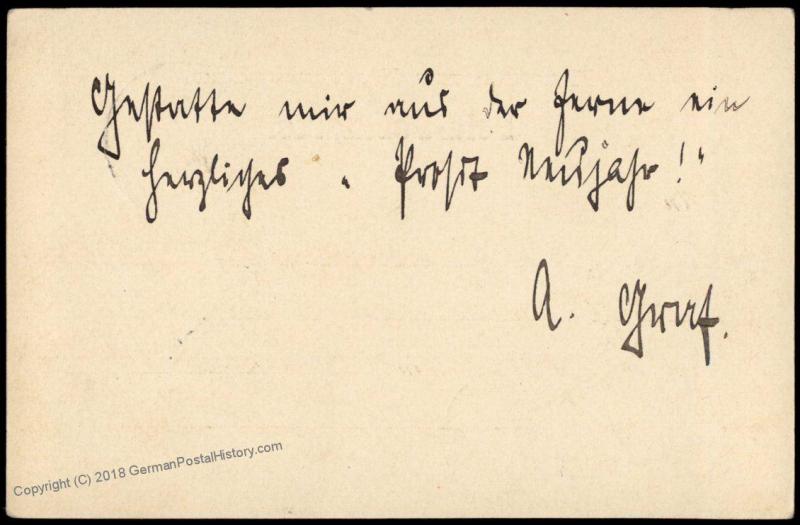 Gestatte mir aus der Ferne ein
herzliches „ Prosit Neujahr!"
A. Graf.
Copyright (C) 2018 GermanPostalHistory.com